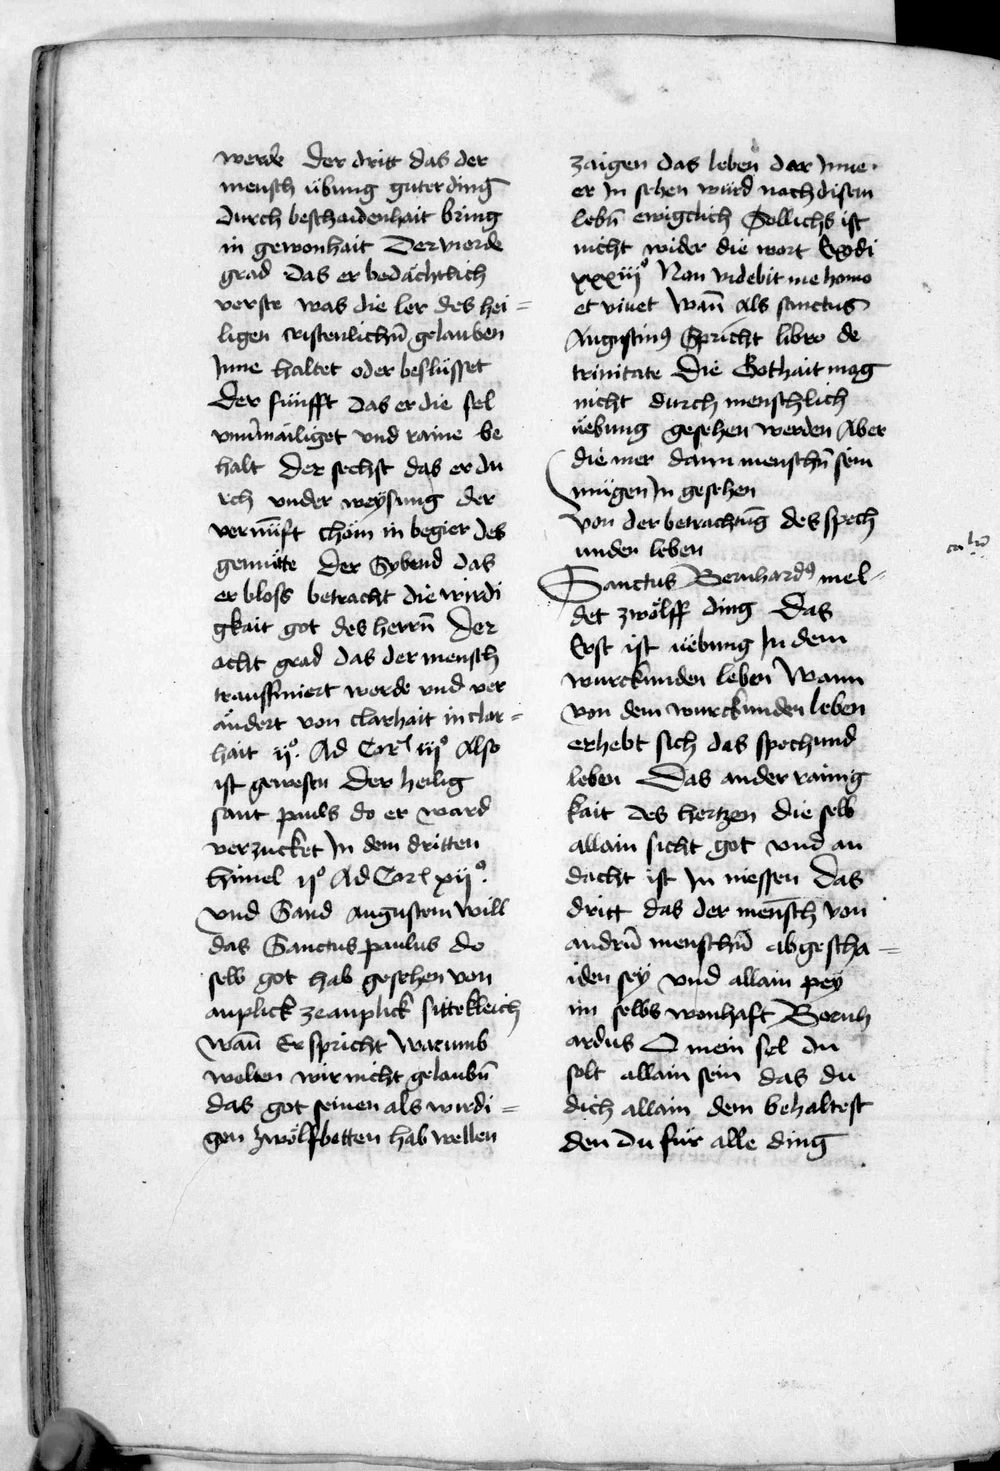 werde Der dritt das der
mensch übung guter ding
durch beschaidenhait bring
in gewonhait Der vierde
grad das er bedächtlich
verste was die ler des hei=
ligen cristenlichn̄ gelauben
Inne haltet oder beslüsset
Der fünfft das er die sel
vnuermäiliget vnd raine be
halt Der sechst das er du
rch vnder weÿsung der
vernūft chöm in begier des
gemütte Der Sybend das
er bloss betracht die wirdi
gkait got des herrn̄ Der
acht grad das der mensch
transfirmiert werde vnd ver
ändert von clarhait in clar=
hait ijº. Ad Cor iijº Also
ist gewesen Der heilig
sant pauls do er ward
verzucket In dem dritten
himel ijº Ad Cor xijº.
Vnd Sand Augustein will
das Sanctus paulus do
selb got hab gesehen von
anplick ze anplick sittekleich
Wan̄ Er spricht Warumb
wolten wir nicht gelaubn̄
das got seinen als wirdi=
gen zwölfbotten hab wellen
zaigen das leben dar Inne
er In sehen würd nach disem
lebn̄ ewigclich Sollichs ist
nicht wider die wort Exodi
xxxiijº Non videbit me homo
et viuet Wan̄ Als sanctus
Augustinꝰ Spricht libro de
trinitate Die Gothait mag
nicht durch menschlich
üebung gesehen werden Aber
die mer dann menschn̄ sein
mügen In gesehen
Von der betrachtūg des spech
unden leben
Sanctus Bernhardꝰ mel=
det zwölff ding Das
Erst ist üebung In dem
wurckunden leben Wann
von dem wurckunden leben
erhebt sich das spechund
leben Das ander rainig
kait des hertzen die selb
allain sicht got vnd an
dacht ist In messen Das
dritt das der mensch von
andrn̄ menschn̄ abgescha=
iden seÿ vnd allain peÿ
im selbs wonhaft Bernh
ardus O mein sel du
solt allain sein das du
dich allain dem behaltest
den du für alle ding